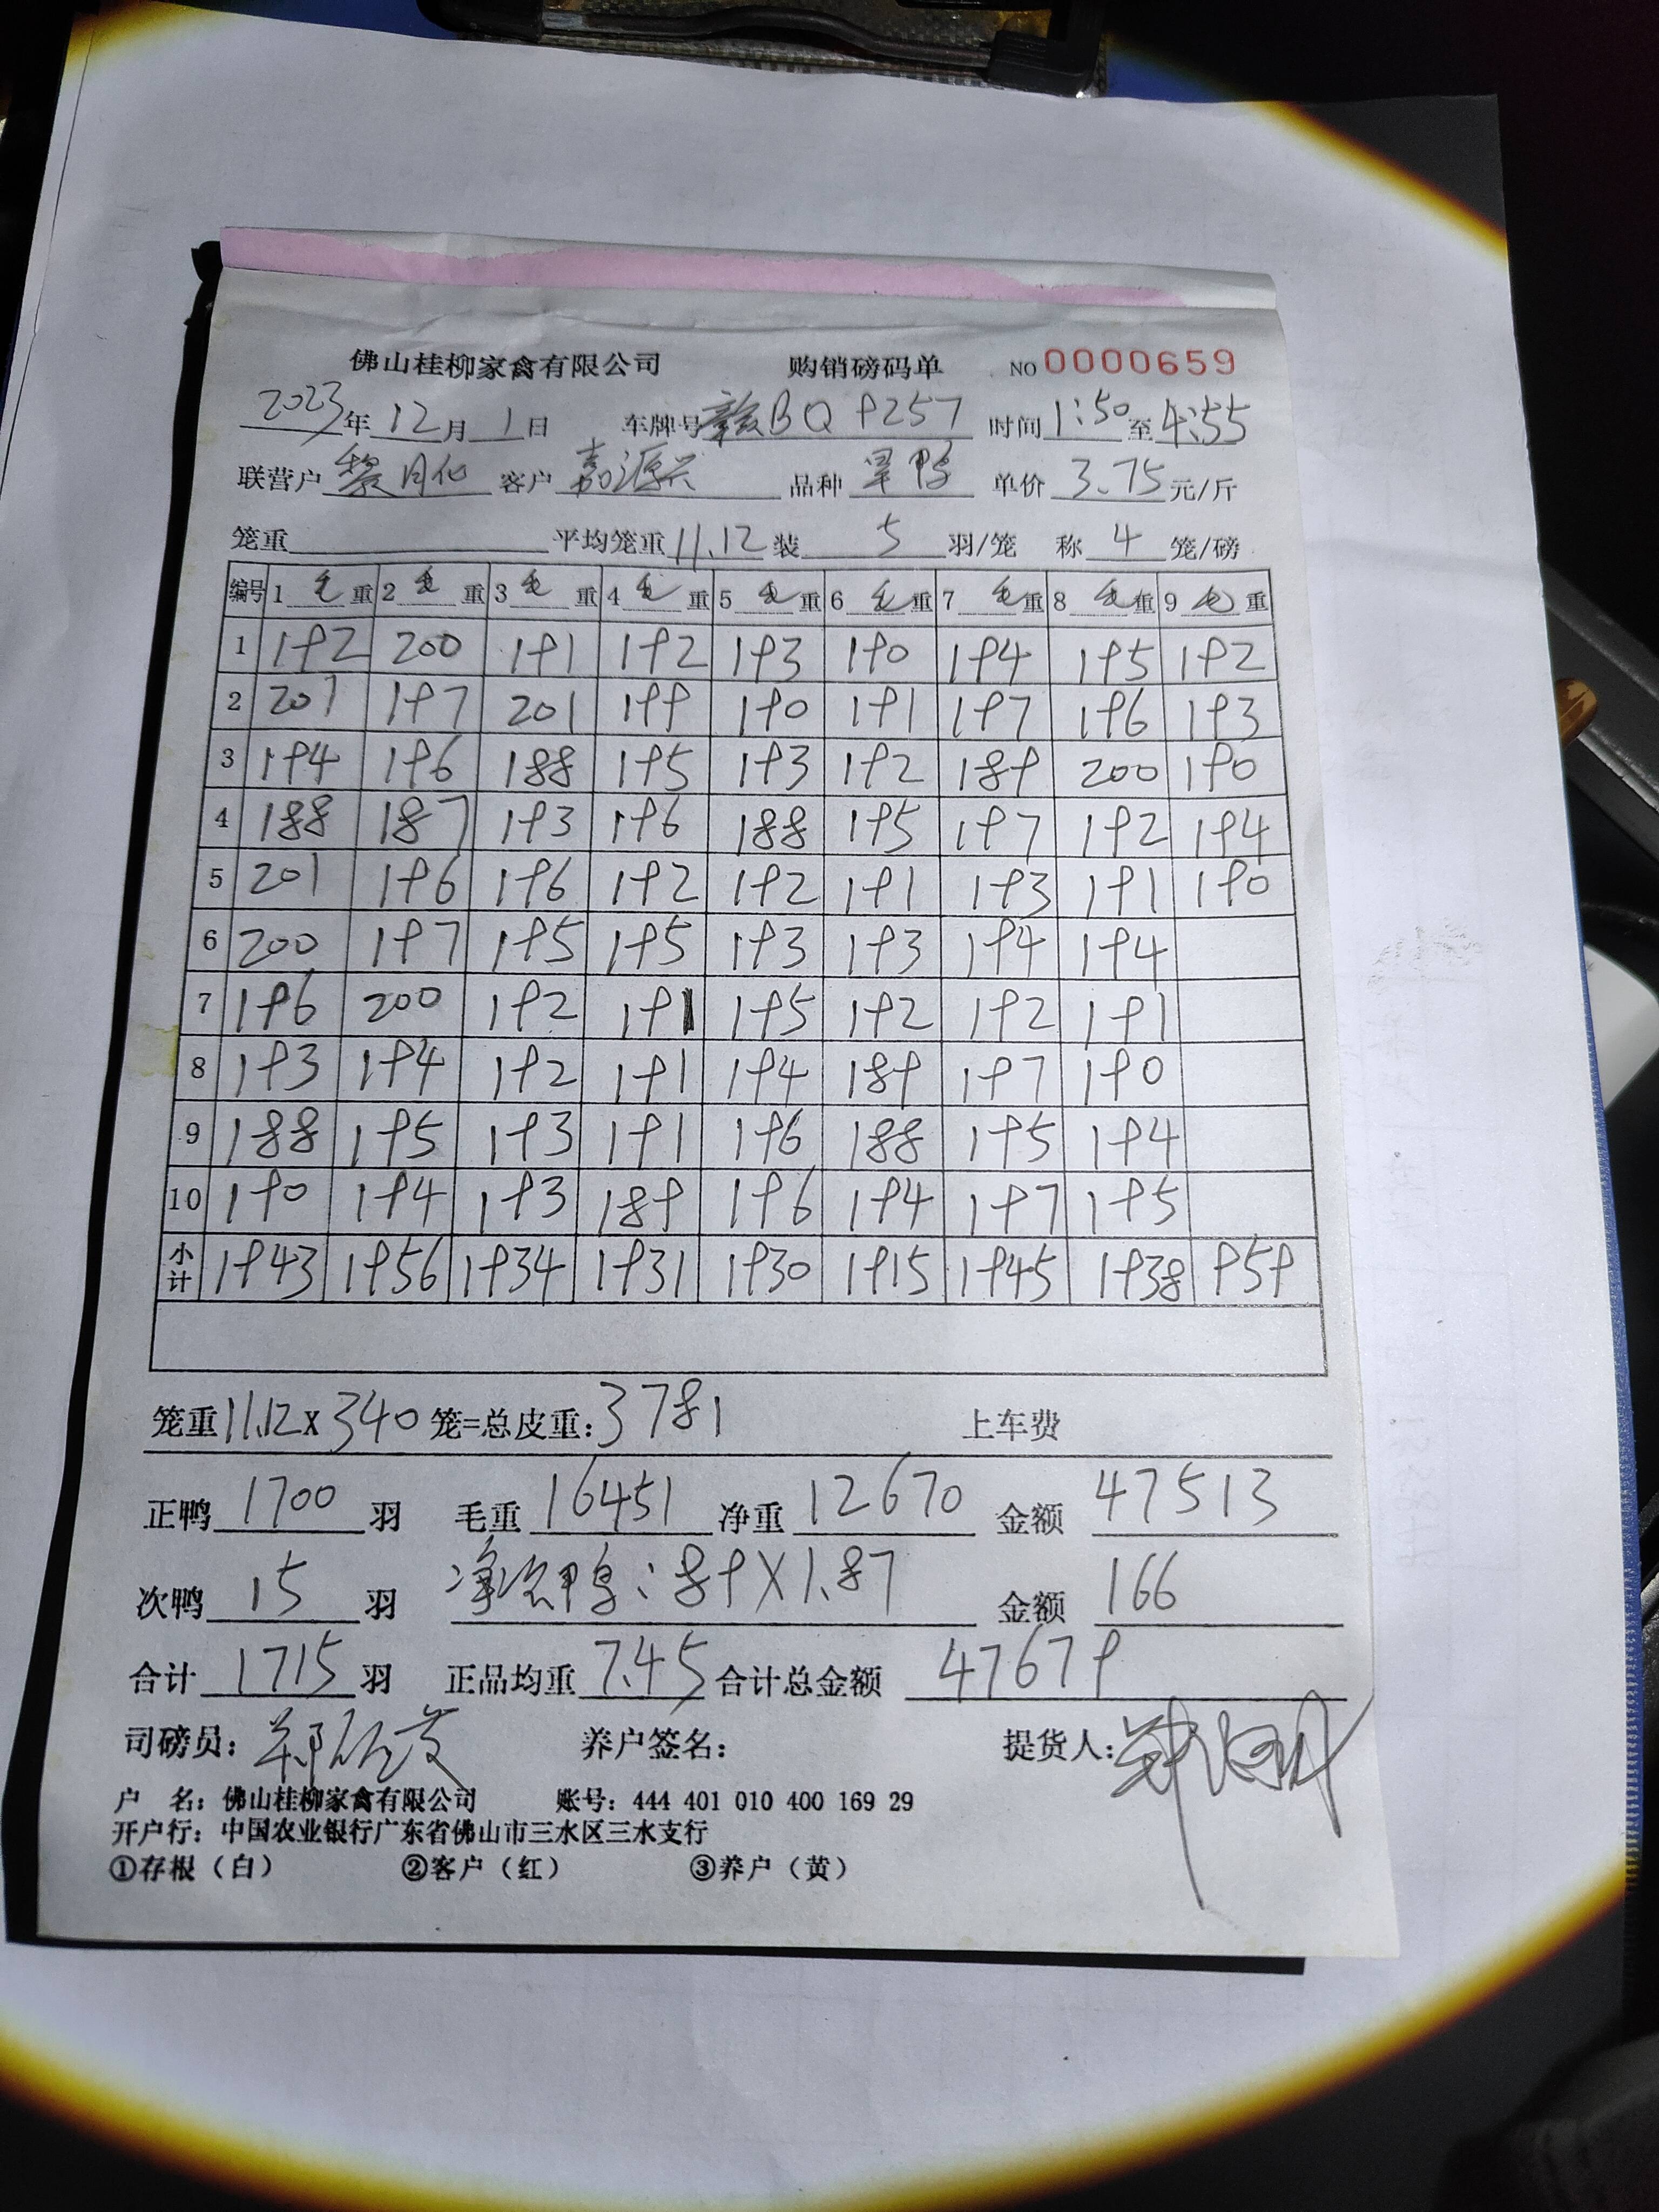 佛山桂柳家禽有限公司 购销磅码单 NO 0000659
2023年12月1日 车牌号赣BQ9257 时间1:50至4:55
联营户黎月化 客户嘉源兴 品种旱鸭 单价3.75元/斤
笼重 平均笼重11.12装5羽/笼 称4笼/磅
编号 1毛重 2毛重 3毛重 4毛重 5毛重 6毛重 7毛重 8毛重 9毛重
1 192 200 191 192 193 190 194 195 192
2 201 197 201 199 190 191 197 196 193
3 194 196 188 195 193 192 189 200 190
4 188 187 193 196 188 195 197 192 194
5 201 196 196 192 192 191 193 191 190
6 200 197 195 195 193 193 194 194
7 196 200 192 191 195 192 192 191
8 193 194 192 191 194 189 197 190
9 188 195 193 191 196 188 195 194
10 190 194 193 189 196 194 197 195
小计 1943 1956 1934 1931 1930 1915 1945 1938 959
笼重11.12x340笼=总皮重:3781 上车费
正鸭1700羽 毛重16451净重12670 金额47513
次鸭15羽 净次鸭:89X1.87 金额166
合计1715羽 正品均重7.45合计总金额47679
司磅员: 养户签名: 提货人:
户 名: 佛山桂柳家禽有限公司 账号: 444 401 010 400 169 29
开户行: 中国农业银行广东省佛山市三水区三水支行
①存根（白） ②客户（红） ③养户（黄）